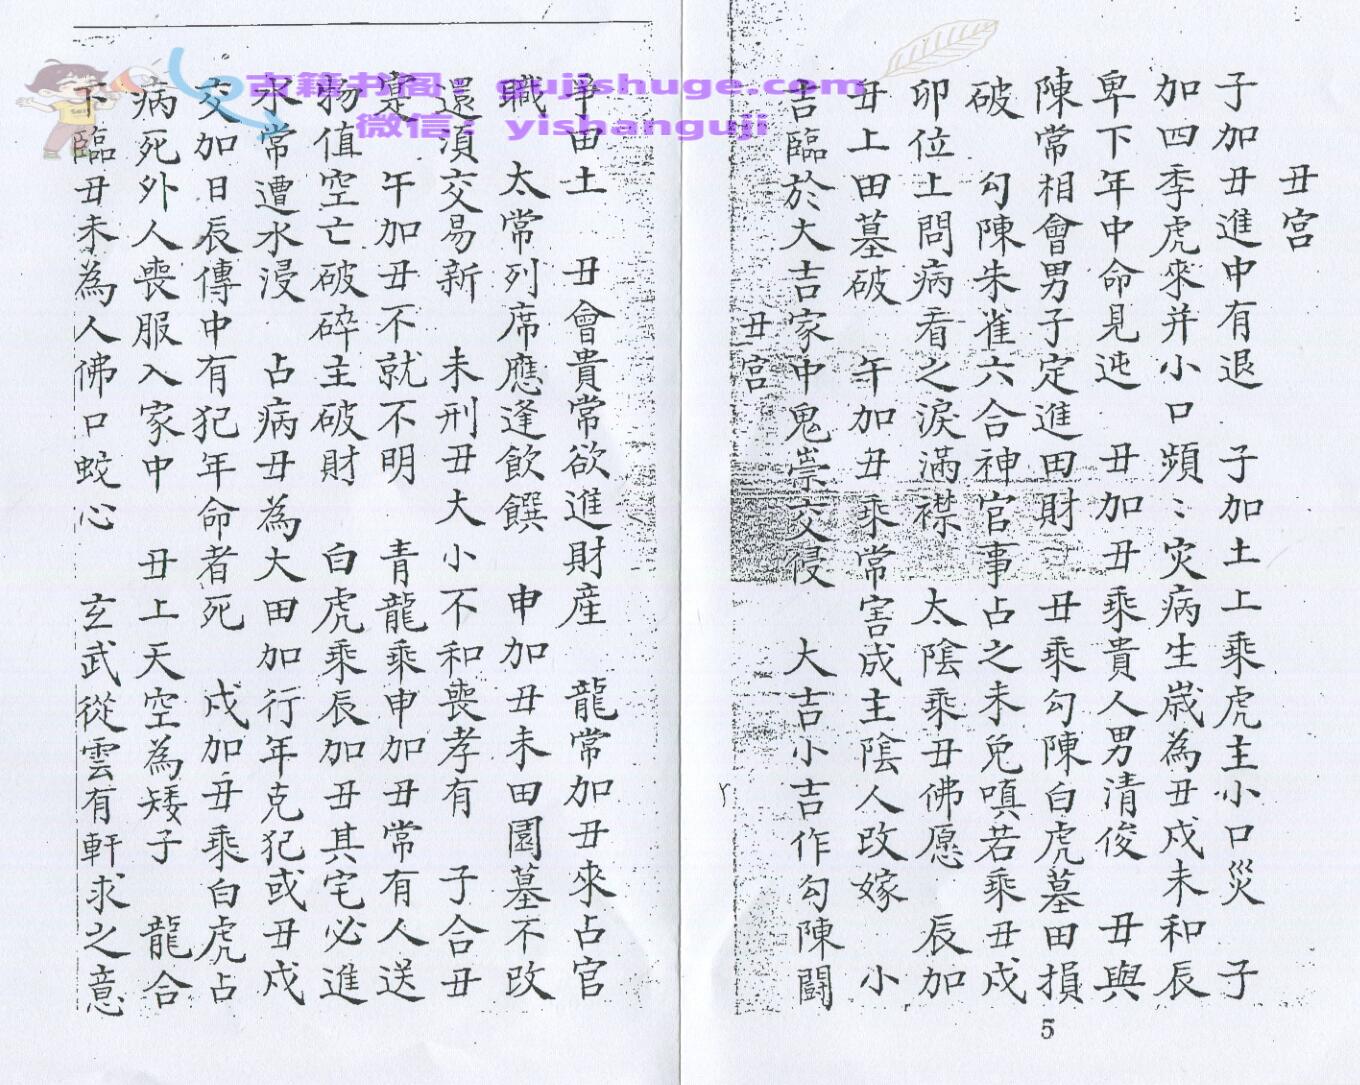 丑宮
子加丑進中有退　子加土上乘虎主小口災　子
加四季虎來并小口頻〻灾病生歲為丑戍未和辰
卑下年中命見迍　丑加丑乘貴人男清俊　丑與
陳常相會男子定進田財　丑乘勾陳白虎墓田損
破　勾陳朱雀六合神官事占之未免嗔若乘丑戍
卯位上問病看之淚滿襟　太陰乘丑佛愿　辰加
丑上田墓破　午加丑乘常害成主陰人改嫁　小
吉臨於大吉家中鬼祟交侵　大吉小吉作勾陳鬪
丑宮
爭田土　丑會貴常欲進財産　龍常加丑來占官
職　太常列席應逢飲饌　申加丑未田園墓不改
還須交易新　未刑丑大小不和喪孝有　子合丑
寔　午加丑不就不明　青龍乘申加丑常有人送
物值空亡破碎主破財　白虎乘辰加丑其宅必進
水常遭水浸　占病丑為大田加行年克犯或丑戍
交加日辰傳中有犯年命者死　戍加丑乘白虎占
病死外人喪服入家中　丑上天空為矮子　龍合
下臨丑未為人佛口蛇心　玄武從雲有軒求之意
5
古籍书阁：gujishuge.com
微信：yishanguji